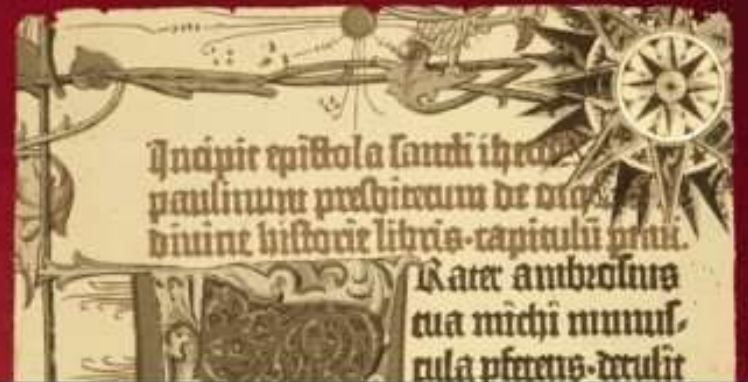 Incipit epistola sancti ihero
paulinum presbiterum de om
divine historie libris·capitulū pmū.
Rater ambrosius
tua michi munus-
cula pferens·detulit